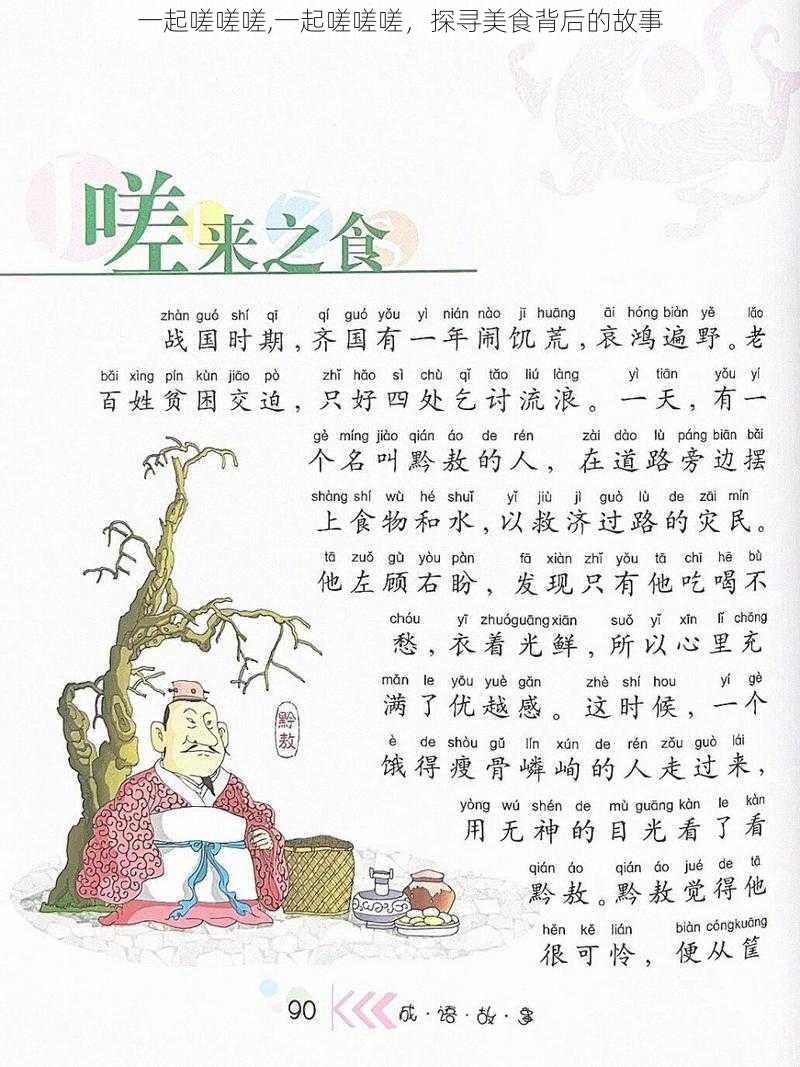 一起嗟嗟嗟,一起嗟嗟嗟，探寻美食背后的故事
嗟来之食
zhàn guó shí qī qí guó yǒu yì nián nào jī huāng āi hóng biàn yě lǎo
战国时期，齐国有一年闹饥荒，哀鸿遍野。老
bǎi xìng pín kùn jiāo pò zhǐ hǎo sì chù qǐ tǎo liú làng yì tiān yǒu yí
百姓贫困交迫，只好四处乞讨流浪。一天，有一
gè míng jiào qián áo de rén zài dào lù páng biān bǎi
个名叫黔敖的人，在道路旁边摆
shàng shí wù hé shuǐ yǐ jiù jì guò lù de zāi mín
上食物和水，以救济过路的灾民。
tā zuǒ gù yòu pàn fā xiàn zhǐ yǒu tā chī hē bù
他左顾右盼，发现只有他吃喝不
chóu yī zhuó guāng xiān suǒ yǐ xīn lǐ chōng
愁，衣着光鲜，所以心里充
mǎn le yōu yuè gǎn zhè shí hou yí gè
满了优越感。这时候，一个
è de shòu gǔ lín xún de rén zǒu guò lái
饿得瘦骨嶙峋的人走过来，
yòng wú shén de mù guāng kàn le kàn
用无神的目光看了看
qián áo qián áo jué de tā
黔敖。黔敖觉得他
hěn kě lián biàn cóng kuāng
很可怜，便从筐
黔敖
90 成·语·故·事